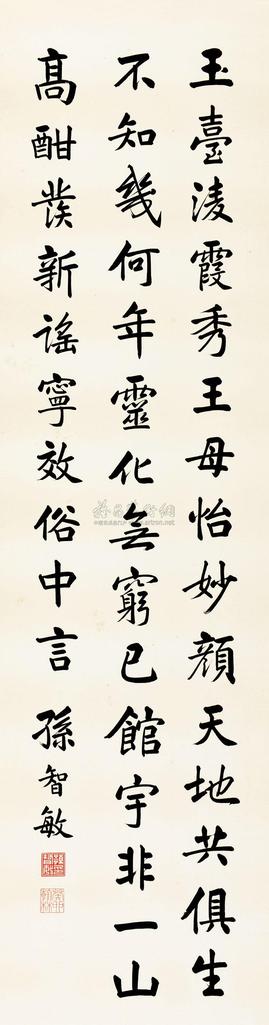 玉臺凌霞秀王母怡妙顏天地共俱生
不知幾何年靈化無窮已館宇非一山
高酣發新謠寧效俗中言
孫智敏